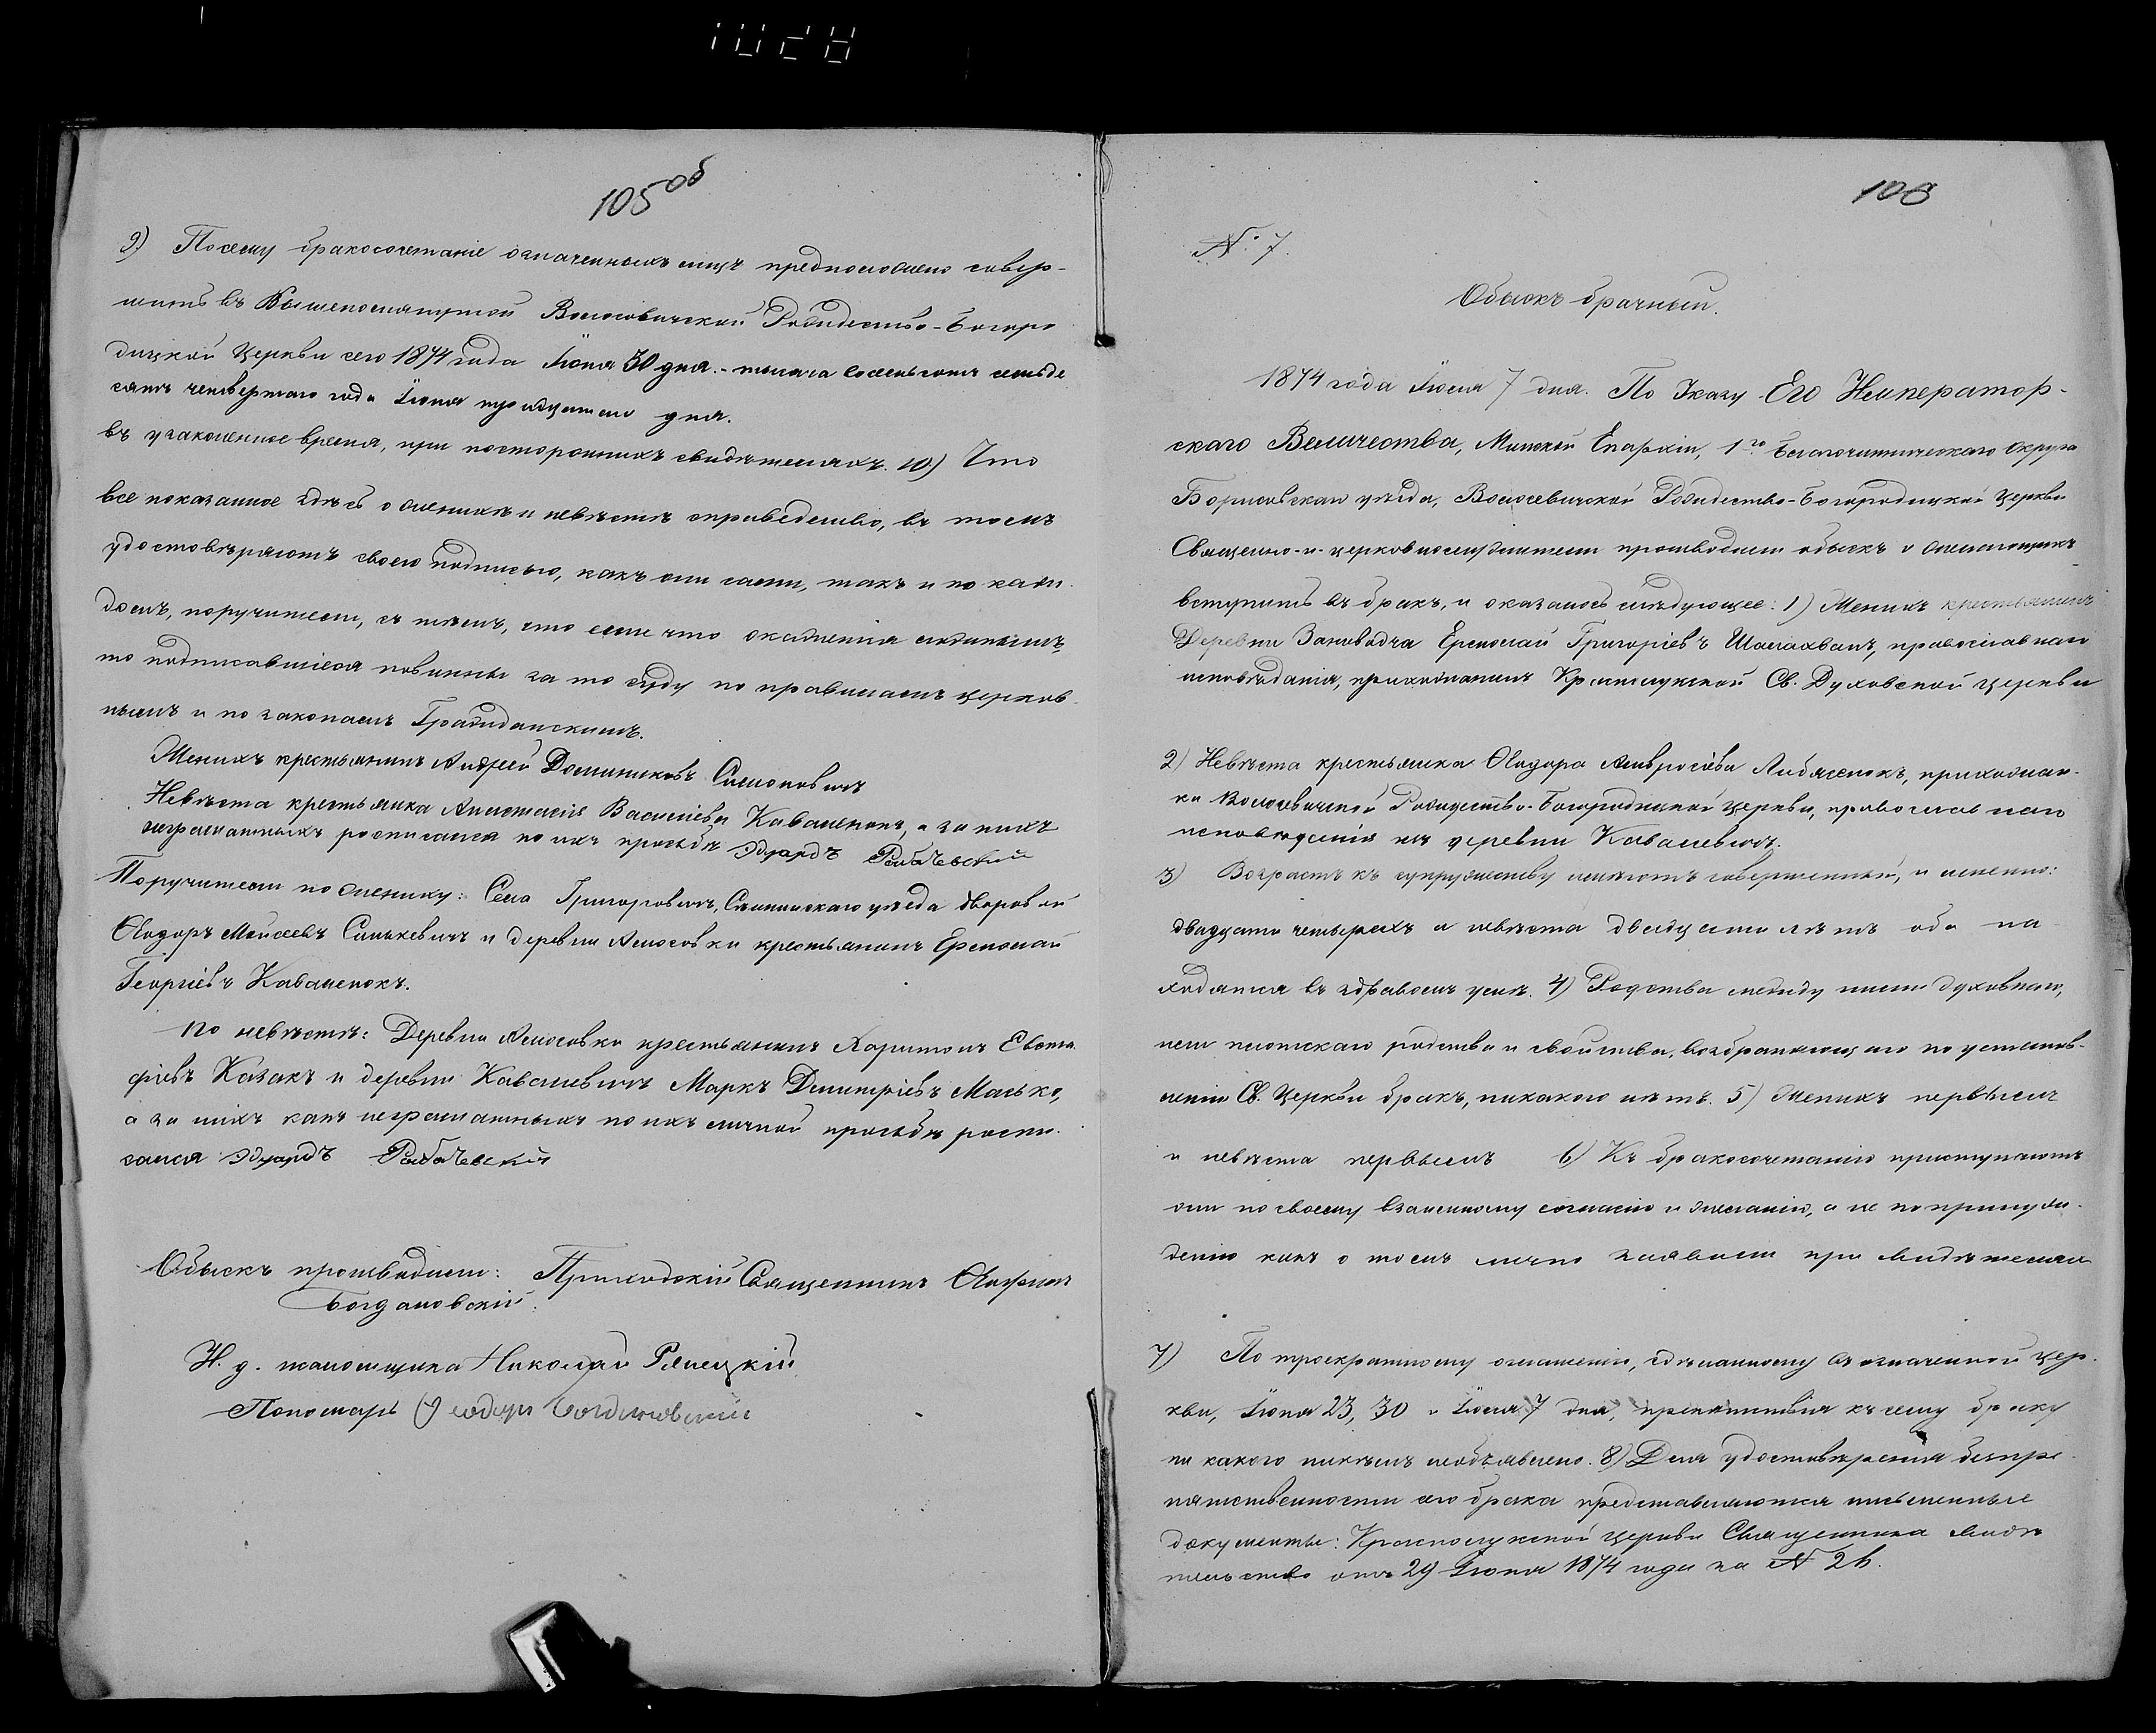 105 об
9) Посему бракосочетаніе означенныхъ лицъ предположено совер-
шить въ вышепомянутой Волосовичской Рождество-Богоро
дицкой Церкви сего 1874 года Іюня 30 дня. - тысяча восемьсотъ семьде
сятъ четвертаго года Іюня тридцатаго дня.
въ узаконенное время, при постороннихъ свидѣтеляхъ. 10) Что
все показанное здѣсь о женихѣ и невѣстѣ справедливо, въ томъ
удостовѣряютъ своею подписью, какъ они сами, такъ и по каж-
домъ, поручители, съ тѣмъ, что если что окажется ложнымъ,
то подписавшіеся повинны за то суду по правиламъ церков-
нымъ и по законамъ Гражданскимъ.
Женихъ крестьянинъ Андрей Доминиковъ Симоновичъ
Невѣста крестьянка Анастасія Васильева Коваленокъ, а за нихъ
неграмотныхъ росписался по ихъ просьбѣ Эдуардъ
Поручители по женику: Села Григоровичъ, уѣзда дворовой
Ѳеодоръ Моисеевъ Синкевичъ и деревни Амосовки крестьянинъ Ермолай
Георгіевъ Коваленокъ.
По невѣстѣ: Деревни Амосовки крестьянинъ Харитонъ Евста
фіевъ Казакъ и деревни Ковалевичъ Маркъ Димитріевъ Масько,
а за нихъ какъ неграмотныхъ по ихъ личной просьбѣ роспи-
сался Эдуардъ
Обыскъ производили: Приходскій Священникъ
Богдановскій.
И. д. псаломщика Николай
Пономарь Ѳеодоръ Богдановскій
106
№ 7.
Обыскъ брачный.
1874 года Іюля 7 дня. По Указу Его Император-
скаго Величества, Минской Епархіи, 1го Благочинническаго Округа
Борисовскаго уѣзда, Волосевичской Рождество-Богородицкой Церкви
Священно-и-церковнослужители производили обыскъ о желающихъ
вступить въ бракъ, и оказалось слѣдующее: 1) Женихъ крестьянинъ
Деревни Ермолай Григоріевъ православнаго
исповѣданія, прихожанинъ Краснолукской Св. Духовской церкви
2) Невѣста крестьянка Ѳеодора Амвросіева прихожан-
ка Волосевичской Рождество-Богородицкой церкви, православнаго
исповѣданія изъ деревни Ковалевичъ.
3) Возрастъ къ супружеству имѣютъ совершенный, и именно:
двадцати четырехъ а невѣста двадцати лѣтъ оба на-
ходятся въ здравомъ умѣ. 4) Родства между ними духовнаго,
или плотскаго родства и свойства, возбраняющаго по установ-
ленію Св. Церкви бракъ, никакого нѣтъ. 5) Женихъ первымъ
и невѣста первымъ 6) Къ бракосочетанію приступаютъ
они по своему взаимному согласію и желанію, а не по принуж-
денію какъ о томъ лично заявили при свидѣтеляхъ
7) По троекратному оглашенію, сдѣланному въ означенной цер-
кви, Іюня 23, 30 и Іюля 7 дня, препятствія къ сему браку
ни какого никѣмъ необъявлено. 8) Для удостовѣренія безпре-
пятственности сего брака представляются письменные
документы: Краснолукской церкви Священника свидѣ
тельство отъ 29 Іюня 1874 года за № 26.